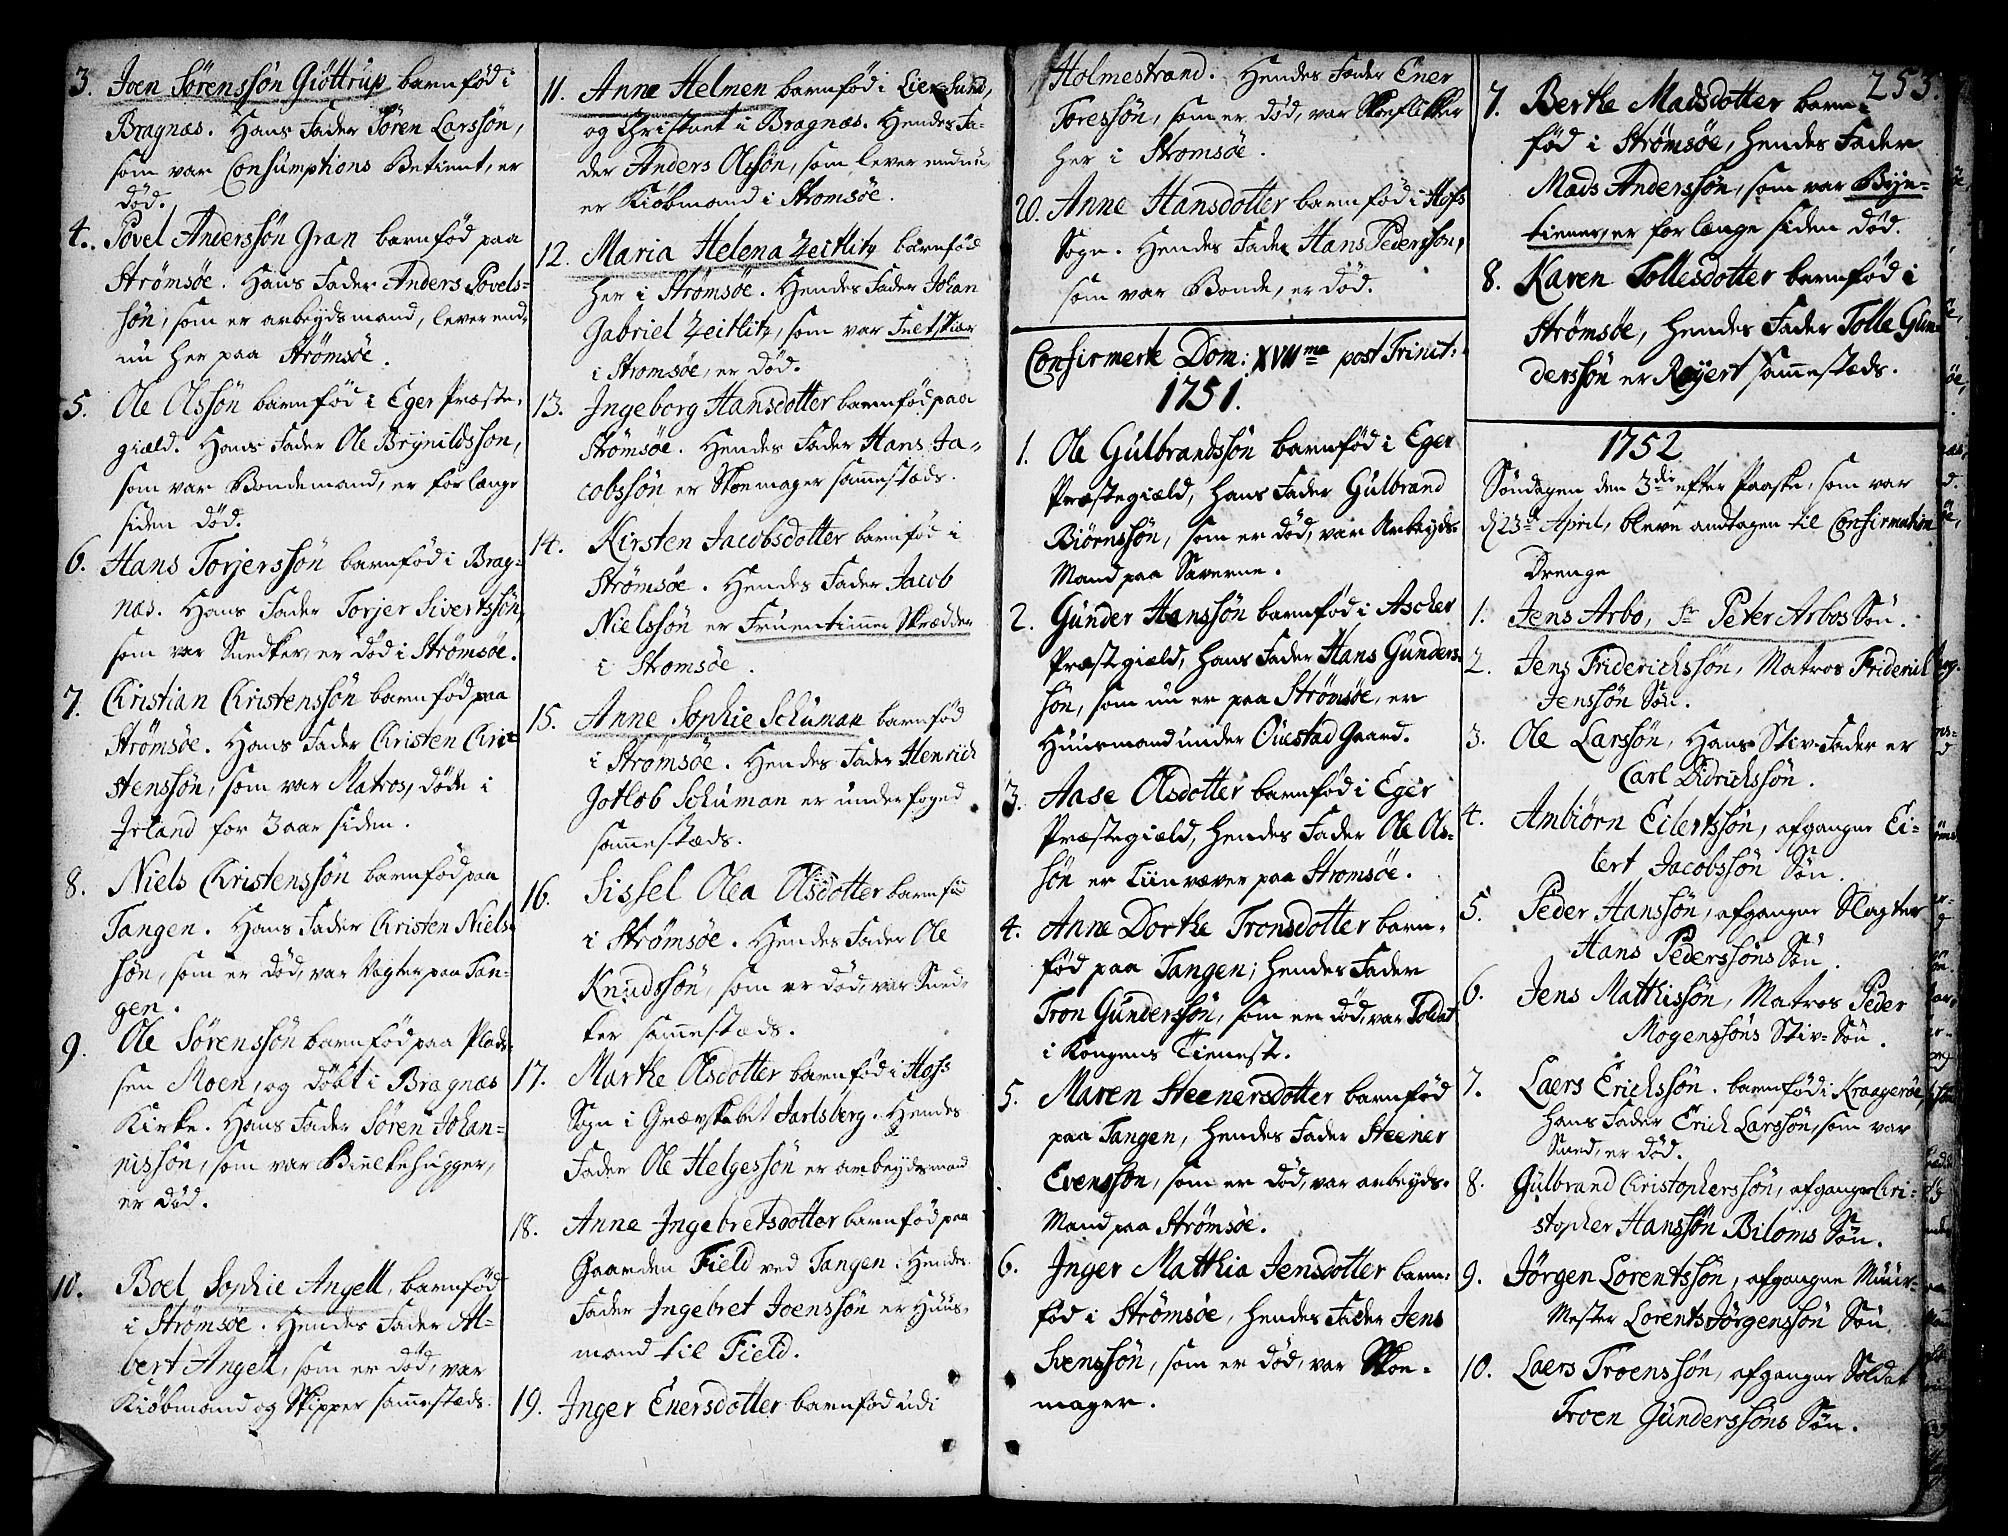 3. Joen Sörenssön Giöttrup barnfød i
Bragnæs. Hans Fader Sören Larssön,
som var Consumptions Betient, er
død.
4. Povel Anderssön Gran barnfød paa
Strömsöe. Hans Fader Anders Povels-
sön, som er arbeydsmand, lever end-
nu her paa Strömsöe.
5. Ole Olssön barnfød i Eger Præste-
giæld. Hans Fader Ole Brynildsson,
som var Bondemand, er for længe
siden død.
6. Hans Torjerssön barnfød i Brag-
næs. Hans Fader Torjer Sivertssön,
som var Snedker, er død i Strömsöe.
7. Christian Christenssön barnfød paa
Strömsöe. Hans Fader Christen Chri-
stenssön, som var Matros, døde i
Irland for 3 aar siden.
8. Niels Christenssön barnfød paa
Tangen. Hans Fader Christen Niels-
sön, som er død, var Vegter paa Tan-
gen.
9. Ole Sörenssön barnfød paa Plad-
sen Moen, og döbt i Bragnæs
Kirke. Hans Fader Sören Johan-
nissön, som var Bielkehugger,
er død.
10. Boel Sophie Angell, barnfød
i Strömsöe. Hendes Fader Al-
bert Angell, som er død, var
Kiöbmand og Skipper sammestæds.
11. Anne Helmen barnfød i Lier-Sund,
og Christnet i Bragnæs. Hendes Fa-
der Anders Olssön, som lever endnu,
er Kiöbmand i Stromsöe.
12. Maria Helena Zeitlitz barnfød
her i Strömsöe. Hendes Fader Johan
Gabriel Zeitlitz, som var Feltskiær
i Stromsöe, er død.
13. Ingeborg Hansdotter barnfød paa
Strömsöe. Hendes Fader Hans Ja-
cobssön er Skoemager sammestæds.
14. Kirsten Jacobsdotter barnfød i
Strömsöe. Hendes Fader Jacob
Nielssön er Fruentimmer Skrædder
i Stromsöe.
15. Anne Sophie Schuman barnfød
i Strömsöe. Hendes Fader Henrich
Gotlob Schuman er underfoged
sammestæds.
16. Sissel Olea Olsdotter barnfød
i Strömsöe. Hendes Fader Ole
Knudssön, som er død, var Sned-
ker sammestæds.
17. Marthe Olsdotter barnfød i Hofs
Sogn i Grævskabet Jarlsberg. Hendes
Fader Ole Helgessön er arbeydsmand
18. Anne Ingebretsdotter barnfød paa
Gaarden Field ved Tangen. Hendes
Fader Ingebret Joenssön er Huus-
mand til Field.
19. Inger Enersdotter barnfød udi
Holmestrand. Hendes Fader Ener
Toressön, som er død, var Skoeflikker
her i Stromsöe.
20. Anne Hansdotter barnfød i Hofs
Sogn. Hendes Fader Hans Pedersson,
som var Bonde, er død.
Confirmerte Dom: XVII me post Trinit:
1751.
1. Ole Gulbrandssön barnfød i Eger
Præstegiæld, Hans Fader Gulbrand
Biörnssön, som er død, var Arbeyds
Mand paa Saverne.
2. Gunder Hanssön barnfød i Ascher
Præstegiæld, Hans Fader Hans Gunders-
sön, som nu er paa Strömsöe, er
Huusmand under Ouestad Gaard.
3. Aase Olsdotter barnfød i Eger
Præstegiæld, Hendes Fader Ole Ols-
sön er Liinvæver paa Stromsöe.
4. Anne Dorthe Tronsdotter barn-
fød paa Tangen; Hendes Fader
Tron Gunderssön, som er død, var Soldat
i Kongens Tieneste.
5. Maren Steenersdotter barnfød
paa Tangen, Hendes Fader Steener
Evensson, som er død, var arbeyds-
Mand paa Strömsöe.
6. Inger Matthia Jensdotter barn-
fød i Strömsöe, Hendes Fader Jens
Svenssön, som er død, var Skoe-
mager.
253.
7. Berthe Madsdotter barn-
fød i Strömsöe, Hendes Fader
Mads Anderssön, som var Bye-
tiener, er for længe siden død.
8. Karen Tollesdotter barnfød i
Strömsöe, Hendes Fader Tolle Gun-
derssön er Reyert sammestæds.
1752
Søndagen den 3die efter Paaske, som var
d. 23de April, bleve antagen til Confirmation
Drenge
1. Jens Arbo, Sr Peter Arbos Søn.
2. Jens Friderichssön, Matros Friderich
Jenssön Søn.
3. Ole Larssön, Hans Stiv-Fader er
Carl Didrichssön.
4. Ambiörn Eilertssön, afgangne Ei-
lert Jacobssön Søn.
5. Peder Hanssön, afgangne Slagter
Hans Pederssöns Søn.
6. Jens Mathissön, Matros Peder
Mogenssöns Stiv-Søn.
7. Laers Erichssön. barnfød i Kraageröe,
Hans Fader Erich Larssön, som var
Smed, er død.
8. Gulbrand Christopherssön, afgangne Chri-
stopher Hanssön Biloms Søn.
9. Jörgen Lorentssön, afgangne Muur-
Mester Lorents Jörgenssön Søn.
10. Laers Troenssön, afgangne Soldat
Troen Gunderssöns Søn.